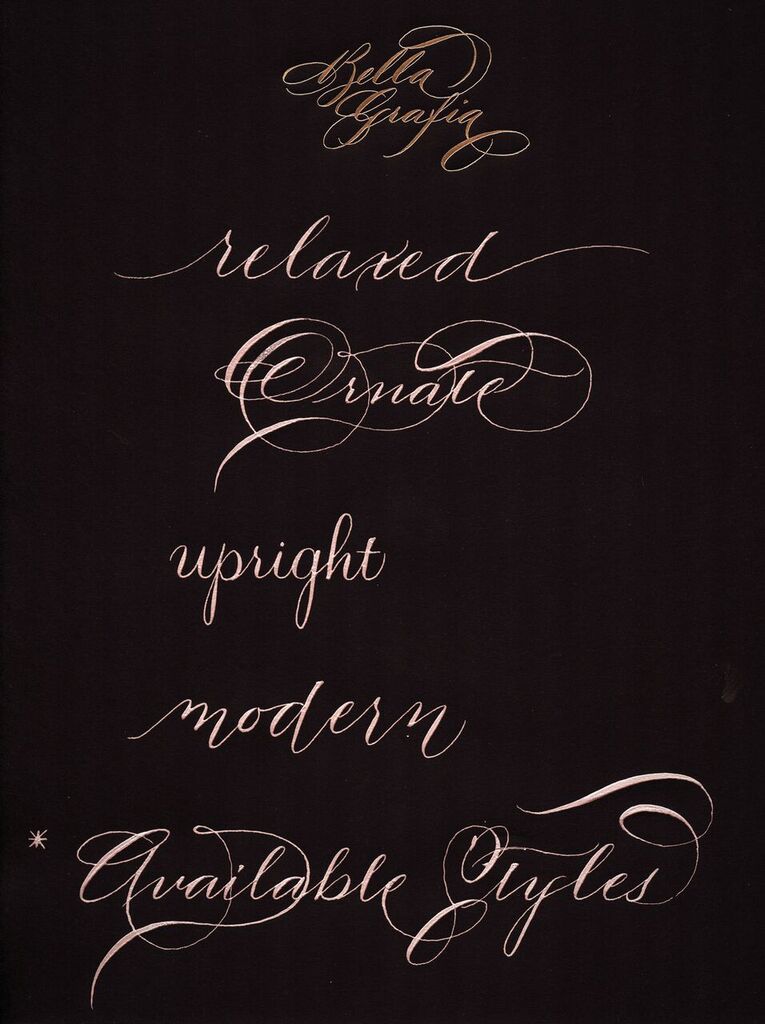 Bella
Grafia
relaxed
Ornate
upright
modern
* Available Styles